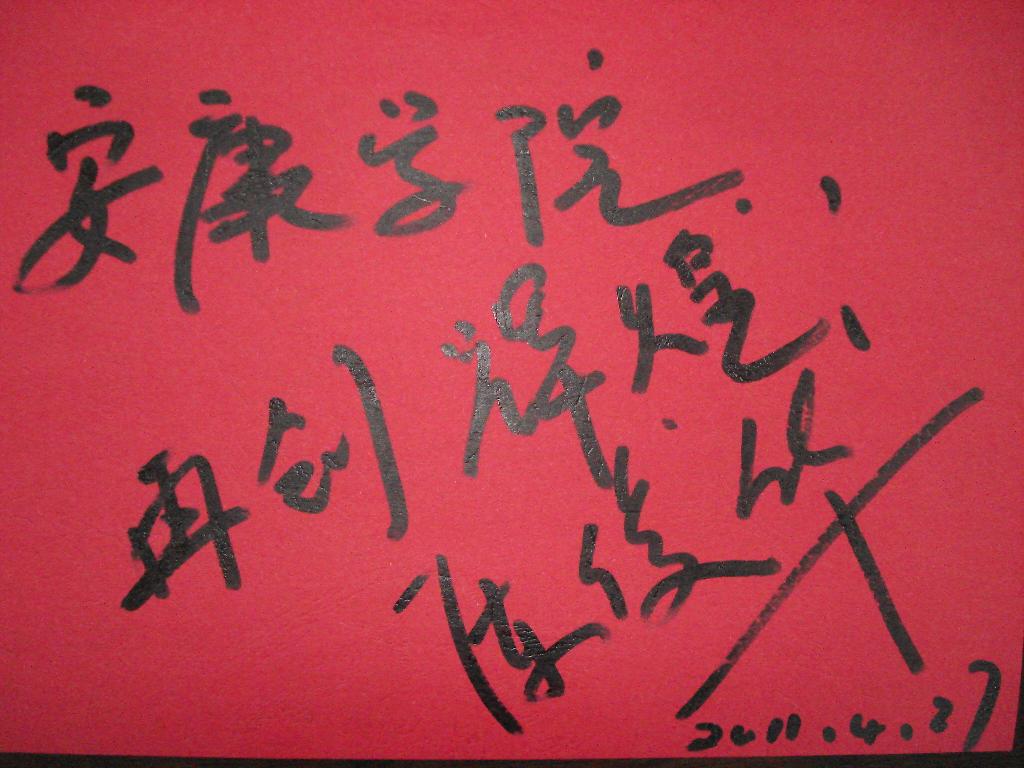 安康学院
再创辉煌
2011.4.27